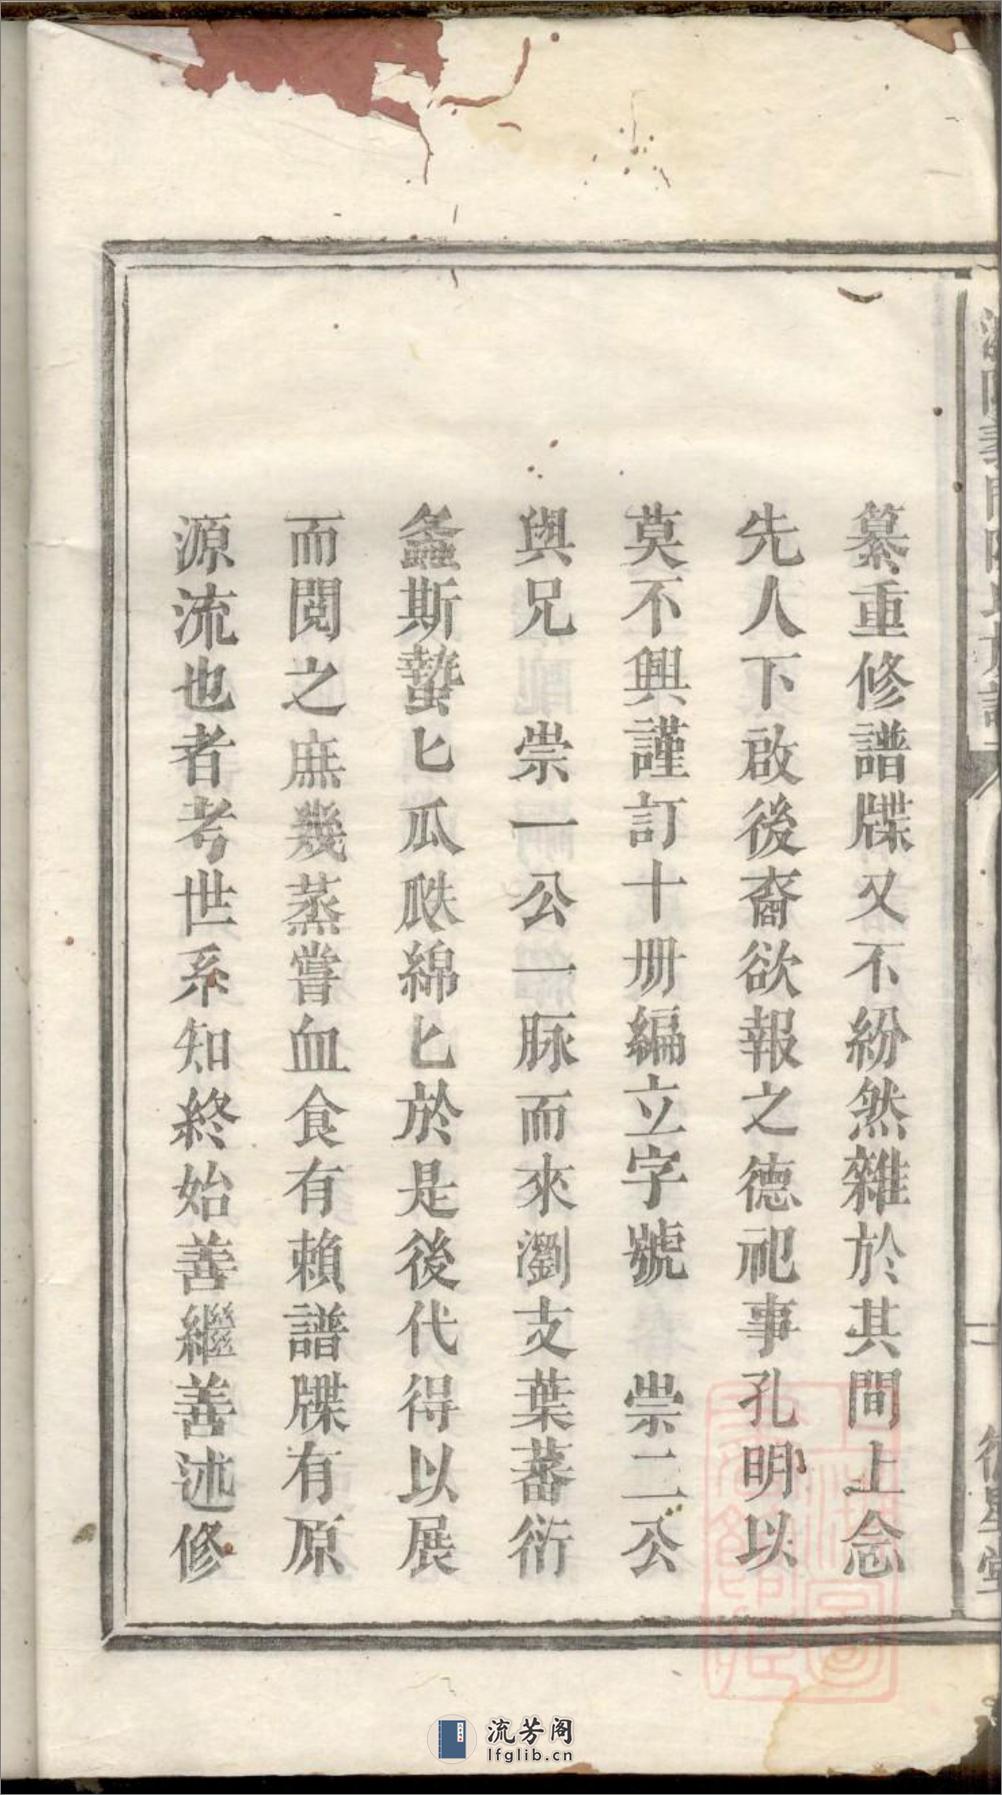 纂重修譜牒又不紛然雜於其間上念
先人下啟後裔欲報之德祀事孔明以
莫不興謹訂十册編立字號　崇二公
與兄　崇一公一脉而來瀏支葉蕃衍
螽斯蟄匕瓜瓞綿匕於是後代得以展
而閱之庶幾蒸嘗血食有賴譜牒有原
源流也者考世系知終始善繼善述修
流芳阁
lfglib.cn